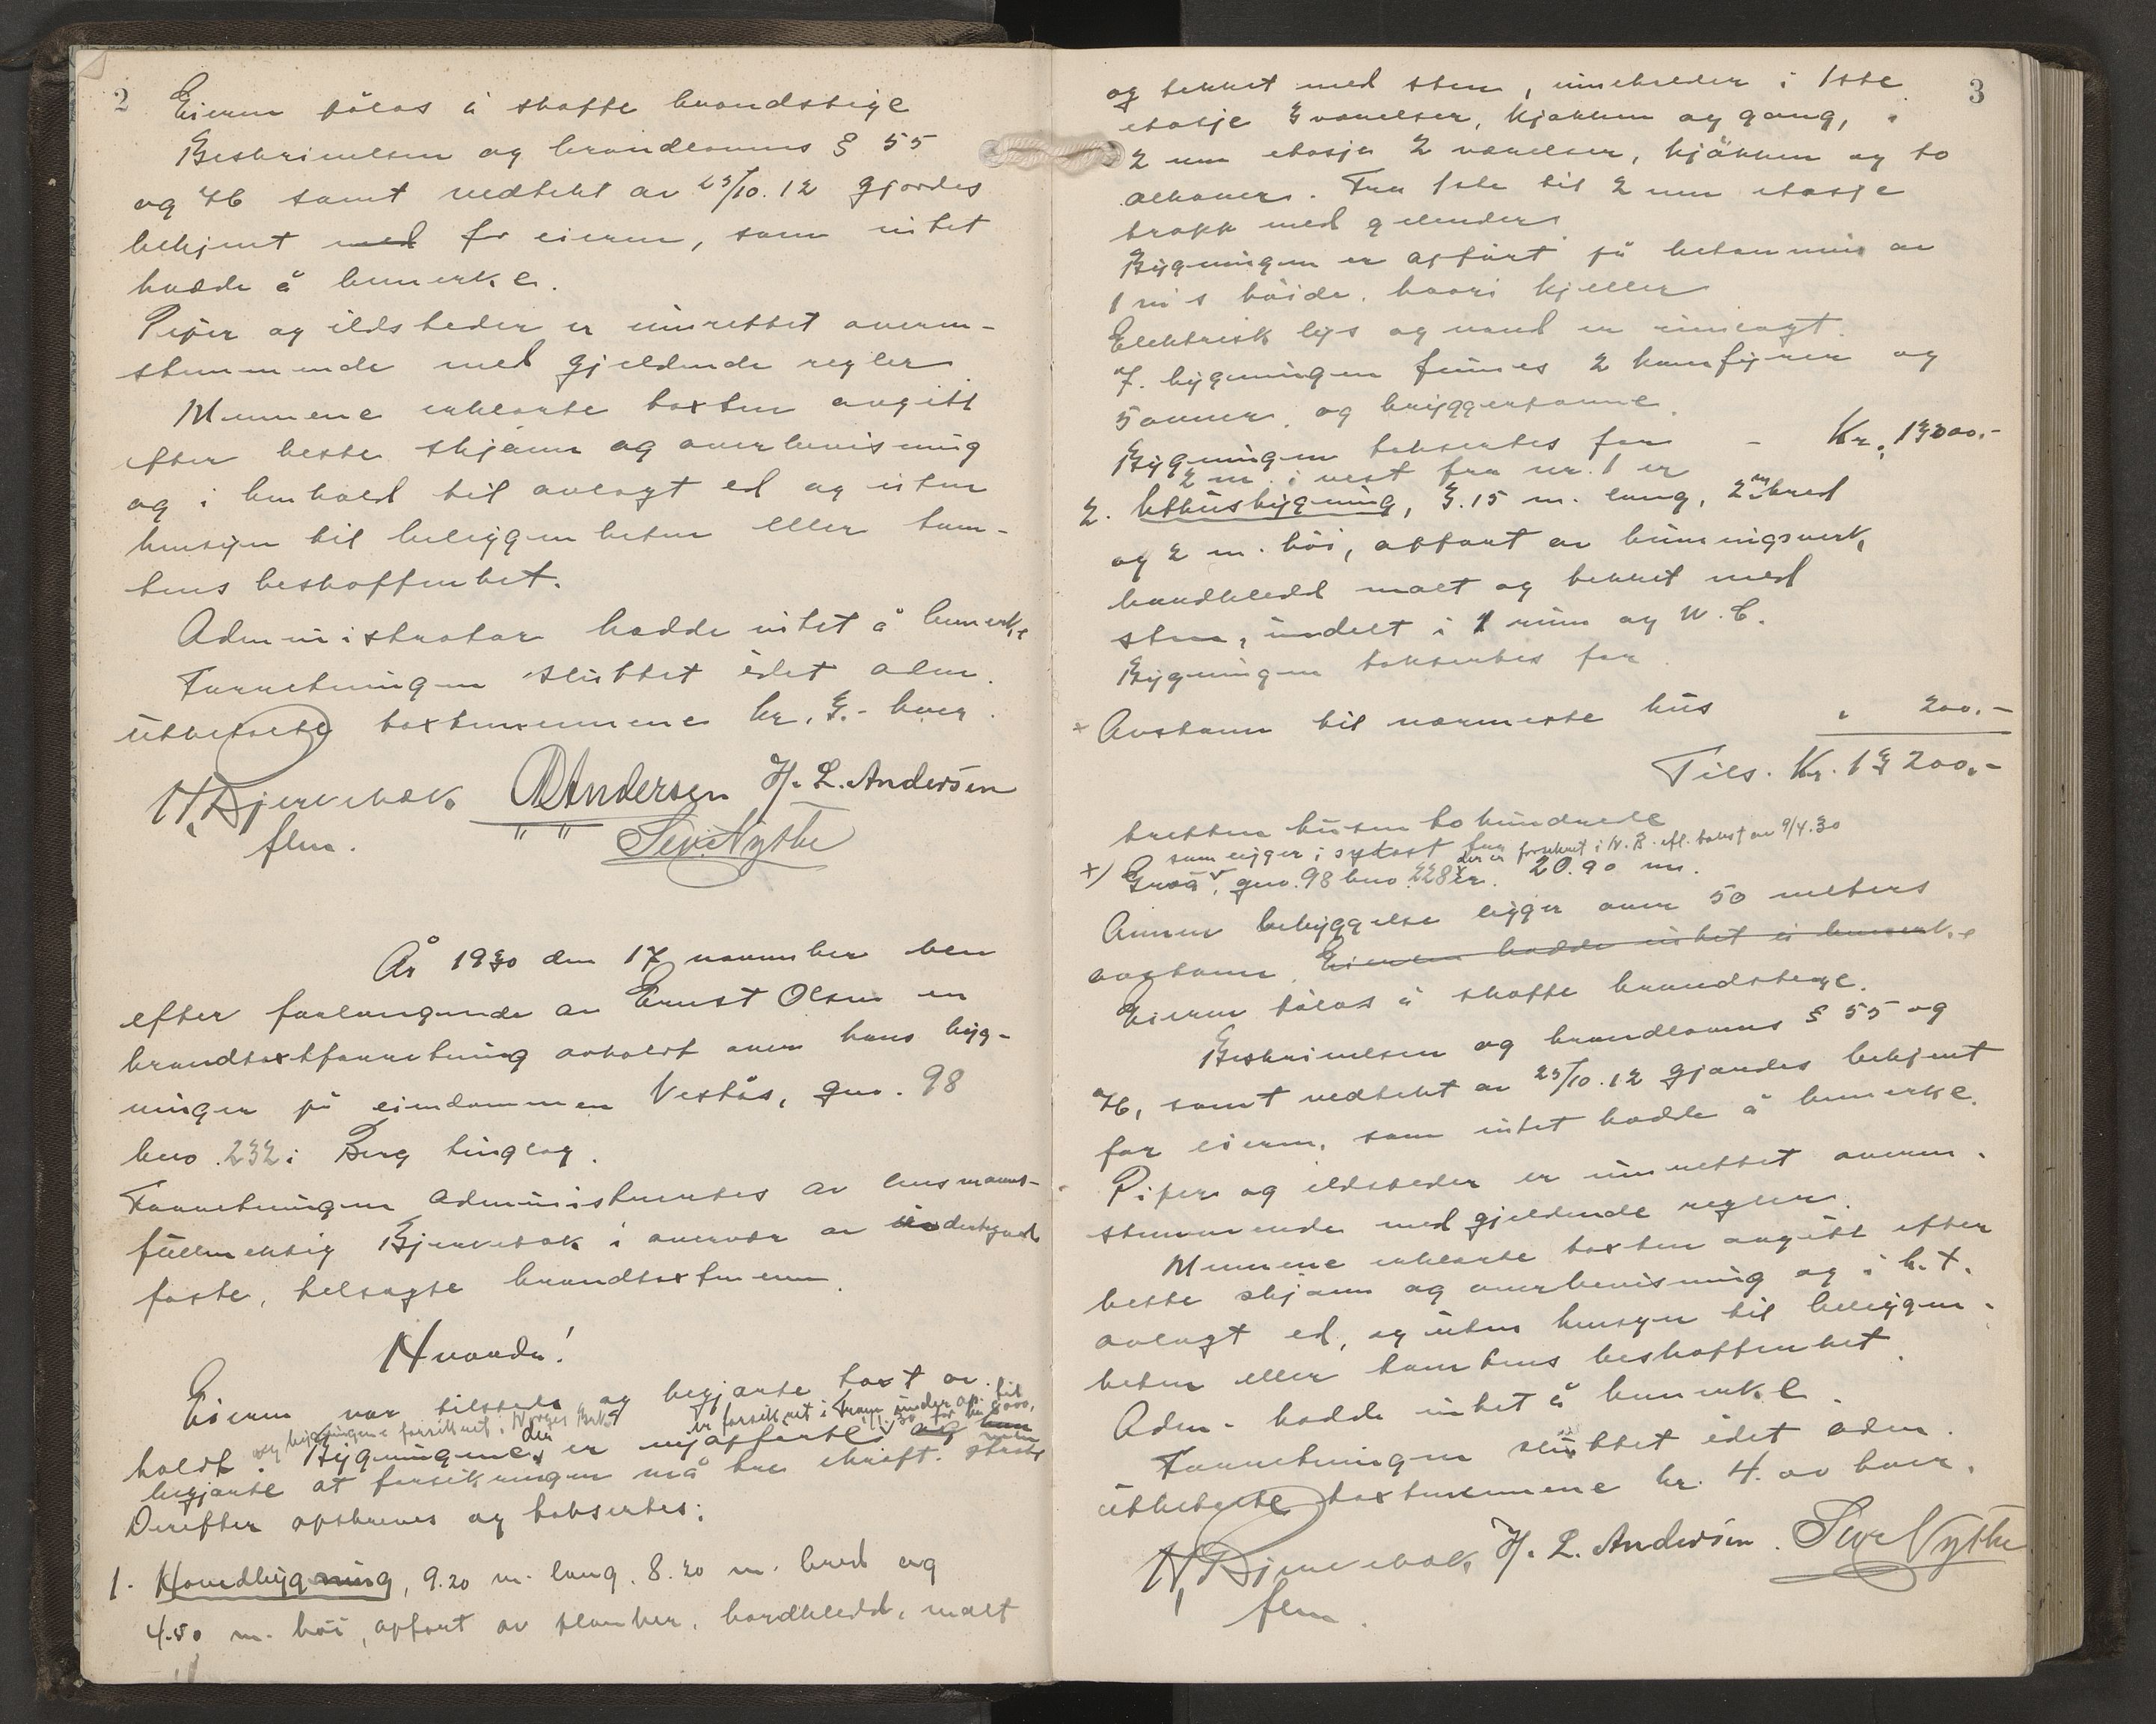 2
Eieren påla's å skaffe brandstige
Beskrivelsen og brandlovens § 55
og 76 samt vedtekt av 25/10.12 gjordes
bekjent med for eieren, som intet
hadde å bemerke.
Piper og ildsteder er innrettet overen-
stemmende med gjeldende regler.
Mennene erklærte taxten avgitt
efter beste skjønn og overbevisning
og i henhold til avlagt ed og uten
hensyn til beliggenheten eller tom-
tens beskaffenhet.
Administrator hadde intet å bemerke
Forretningen sluttet idet adm.
utbetalte taxtmennene kr. 3.- hver.
H. Bjerkebæk ADAndersen H. L. Andersen
flm. " " Siv. Nythe
År 1930 den 17 november blev
efter forlangende av Ernst Olsen en
brandtaxtforretning avholdt over hans byg-
ninger på eiendommen Vestås, gno. 98
bno. 232 i Berg tinglag.
Forretningen administrertes av lensmanns-
fullmektig Bjerkebæk i overvær av undertegnede
faste, beltagte brandtaxtmenn.
Hvorda!
Eieren var tilstede og begjærte taxt av-
og bygningene forsikret i Norges Brk. er forsikret i Fram under op. til
holdt. Bygningene, der er nyopførte, og han
30 for kr 8000,
begjærte at forsikringen må tre i kraft straks
Derefter opskreves og taksertes:
1. Hovedbygning, 9.20 m. lang. 8.20 m. bred og
4.50 m. høi, opført av planker, bordkledd, malt
3
og tekket med sten, innehreder i 1ste
etasje 3 værelser, kjøkken og gang, i
2 nen etasje 2 værelser, kjøkken og to
alkover. Fra 1ste til 2 nen etasje
trapp med gelender.
Bygningen er opført på betonmur av
1 m's høide, hvori kjeller
Elektrisk lys og vand er innlagt.
I bygningen finnes 2 komfyrer og
5 ovner, og bryggerpanne.
Bygningen taksertes for - Kr. 13000.-
2 m. i vest fra nr. 1 er
2. Uthusbygning, 3.15 m. lang, 2 m bred
og 2 m. høi, opført av binningsverk,
bordkledd malt og tekket med
sten, inndelt i 1 rum og W. C.
Bygningen taksertes for
" 200.-
x Avstann til nærmeste hus
Tils. Kr. 13 200.-
tretten tusen to hundrede
som ligger i sydost for der er forsikret i N. B. efl. takst av 9/4.30
x) Groa, gno. 98 bno. 228 er. 20.90 m.
Annen bebyggelse ligger over 50 meters
avstann. Eieren hadde intet å bemerke
Eieren pålas å skaffe brandstege.
Beskrivelsen og brandlovens § 55 og
76, samt vedtekt av 25/10.12 gjordes bekjent
for eieren, som intet hadde å bemerke.
Piper og ildsteder er innrettet overen-
stemmende med gjeldende regler.
Mennene erklærte taxten avgitt efter
beste skjønn og overbevisning og i h. t.
avlagt ed, og uten hensyn til beliggen-
heten eller tomtens beskaffenhet.
Adm. hadde intet å bemerke.
Forretningen sluttet idet adm.
utbetalte taxtmennene kr. 4. av hver.
H. Bjerkebæk, H. L. Andersen. Siv. Nythe
flm.